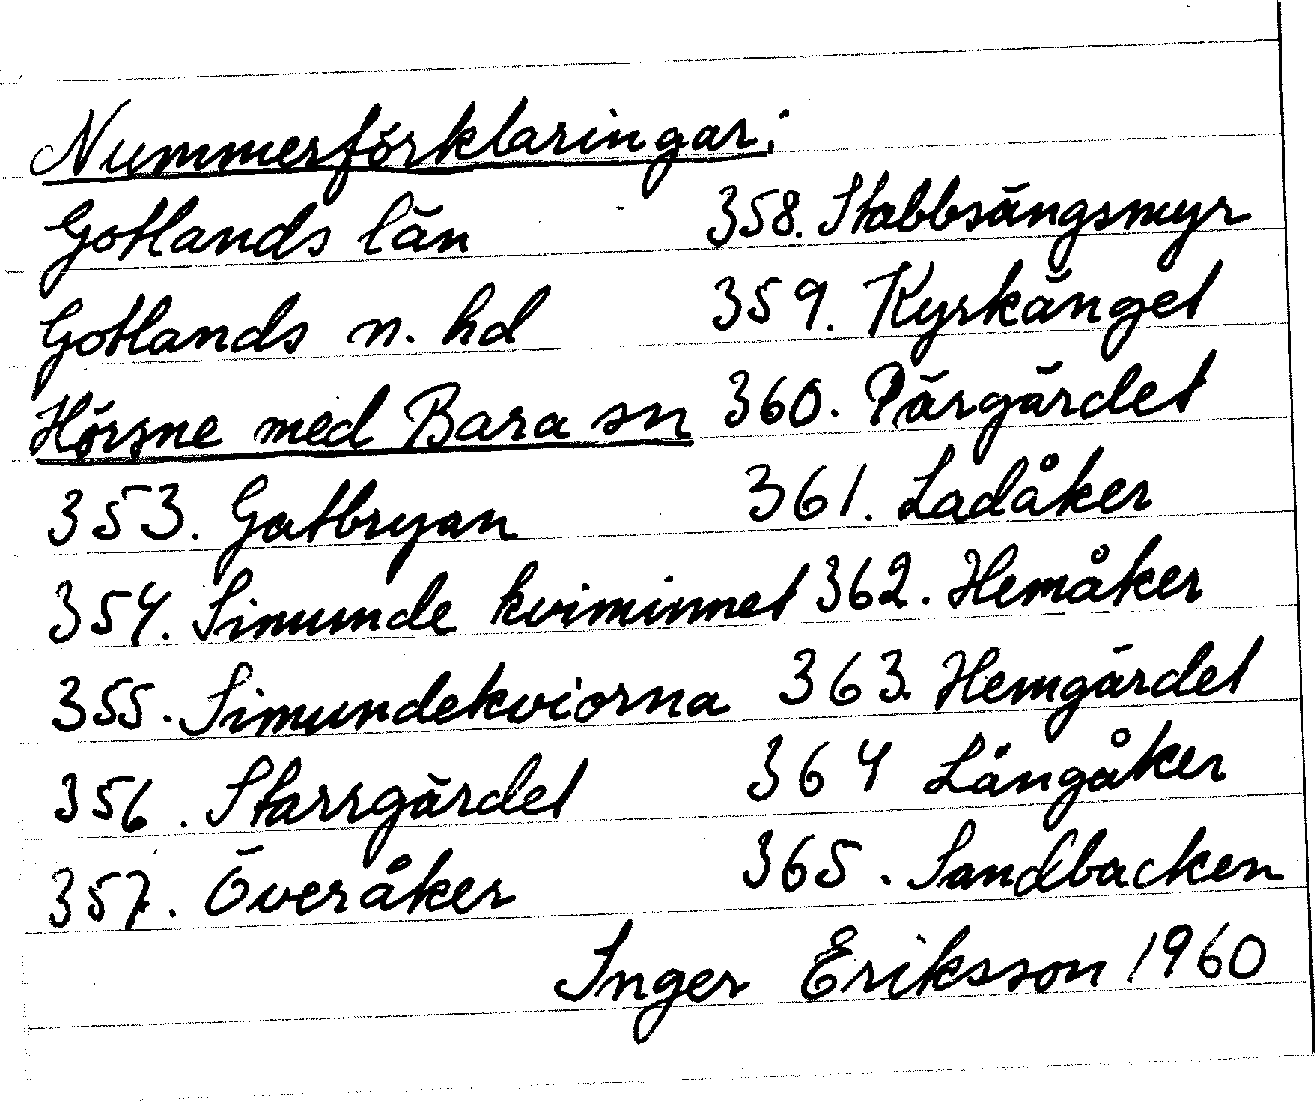 Nummerförklaringar:
Gotlands län
Gotlands n. hd
Hörsne med Bara sn
353. Gatbryan
354. Simunde kviminnet
355. Simundekviorna
356. Starrgärdet
357. Överåker
358. Stabbsängsmyr
359. Kyrkänget
360. Pärgärdet
361. Ladåker
362. Hemåker
363. Hemgärdet
364 Långåker
365. Sandbacken
Inger Eriksson 1960